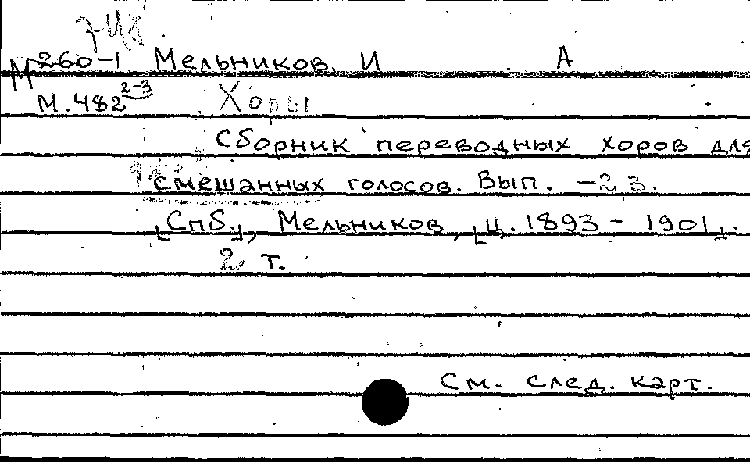 7-48
М 260-1 Мельников, И А
М.482 2-3 Хоры
Сборник переводных хоров для
смешанных голосов. Вып. -2,3.
[Спб.], Мельников, [ц. 1893 - 1901].
2 т.
См. след. карт.